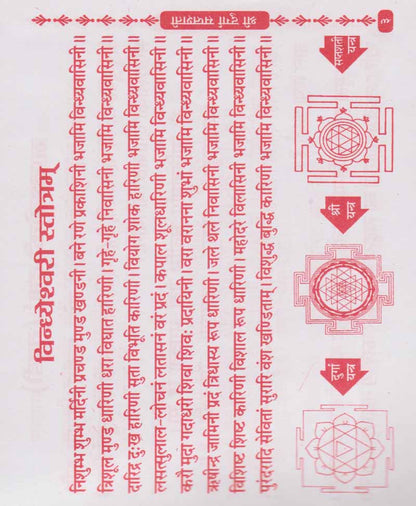 श्री दुर्गा सप्तशती
३
विन्ध्येश्वरी स्तोत्रम्
निशुम्भ शुम्भ मर्दिनी प्रचण्ड मुण्ड खण्डनी। बने रणे प्रकाशिनी भजामि विन्ध्यवासिनी॥
त्रिशूल मुण्ड धारिणी धरा विघात हारिणी। गृहे-गृहे निवासिनी भजामि विन्ध्यवासिनी॥
दारिद्र दुःख हारिणी सुता विभूति कारिणी। वियोग शोक हारिणी भजामि विन्ध्यवासिनी॥
लसत्सुलोल-लोचनं लतासनं वरं प्रदं। कपाल शूलधारिणी भजामि विन्ध्यवासिनी॥
करौ मुदा गदाधरी शिवा शिवः प्रदायिनी। वरा वरानना शुभां भजामि विन्ध्यवासिनी॥
ऋषीन्द्र जामिनी प्रदं त्रिधास्य रूप धारिणी। जले थले निवासिनी भजामि विन्ध्यवासिनी॥
विशिष्ट शिष्ट कारिणी विशाल रूप धारिणी। महोदरे विलासिनी भजामि विन्ध्यवासिनी॥
पुंरदरादि सेवितां मुरारि वंश खण्डिताम्। विशुद्ध बुद्धि कारिणी भजामि विन्ध्यवासिनी॥
सप्तशती
यन्त्र
श्री
यन्त्र
दुर्गा
यन्त्र